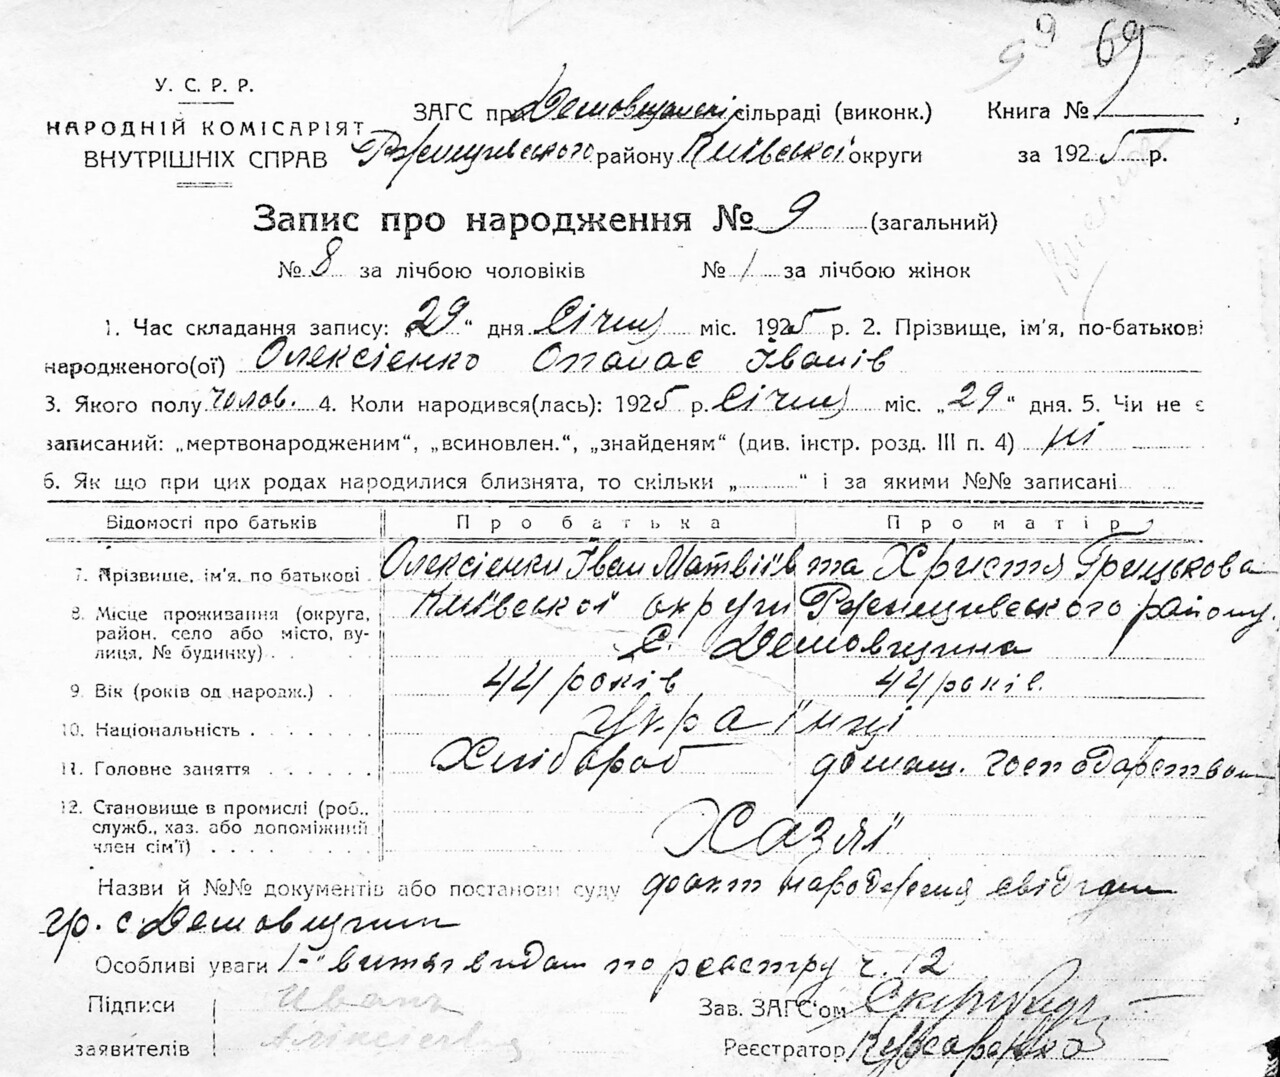 99 69
У. С. Р. Р.
НАРОДНІЙ КОМІСАРІЯТ
ВНУТРІШНІХ СПРАВ
ЗАГС при Демовщинскі сільраді (виконк.) Книга №
Ржищевського району Київської округи за 1925 р.
Запис про народження № 9 (загальний)
№ 8 за лічбою чоловіків № 1 за лічбою жінок
1. Час складання запису: „29" дня Січня міс. 1925 р. 2. Прізвище, ім'я, по-батькові
народженого(ої) Олексієнко Опанас Іванів
3. Якого полу чолов. 4. Коли народився(лась): 1925 р. Січня міс. „29" дня. 5. Чи не є
записаний: „мертвонародженим", „всиновлен.", „знайденям" (див. інстр. розд. III п. 4) ні
6. Як що при цих родах народилися близнята, то скільки „ " і за якими №№ записані
Відомості про батьків Про батька Про матір
7. Прізвище, ім'я, по батькові Олексієнки Іван Матвіїв та Христя Грицькова
8. Місце проживання (округа, район, село або місто, вулиця, № будинку) Київської округи Ржищивського району
с. Демовщина
9. Вік (років од народж.) 44 років 44 років.
10. Національність Українці
11. Головне заняття Хлібороб домаш. господарством
12. Становище в промислі (роб., служб., хаз. або допоміжний член сім'ї) Хазяї
Назви й №№ документів або постанови суду факт народження свідчат
гр. с Демовщини
Особливі уваги 1-" витяг видан по реєстру ч. 12
Підписи Иванъ Зав. ЗАГС'ом
заявителів Реєстратор